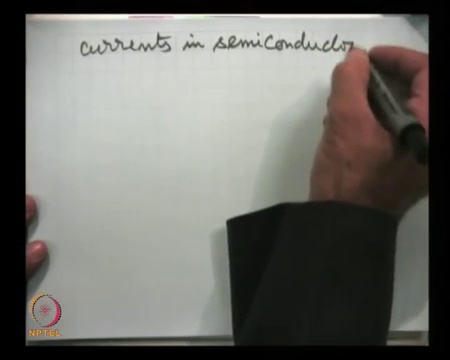 currents in semiconductor
NPTEL